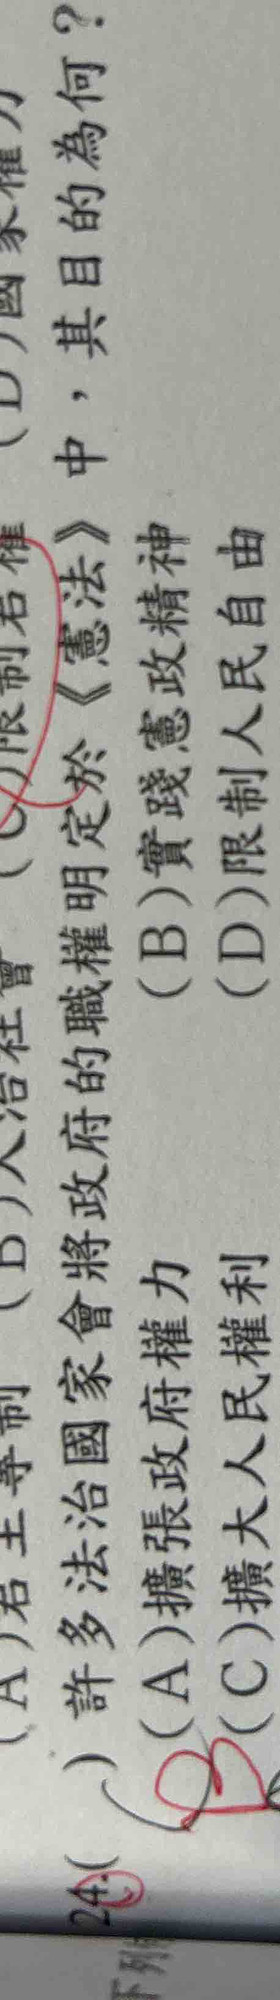 (A)君主專制 (B)人治社會 (C)限制君權 (D)國家權力
24.( ) 許多法治國家會將政府的職權明定於《憲法》中，其目的為何？
(A)擴張政府權力 (B)實踐憲政精神
(C)擴大人民權利 (D)限制人民自由
B
下列